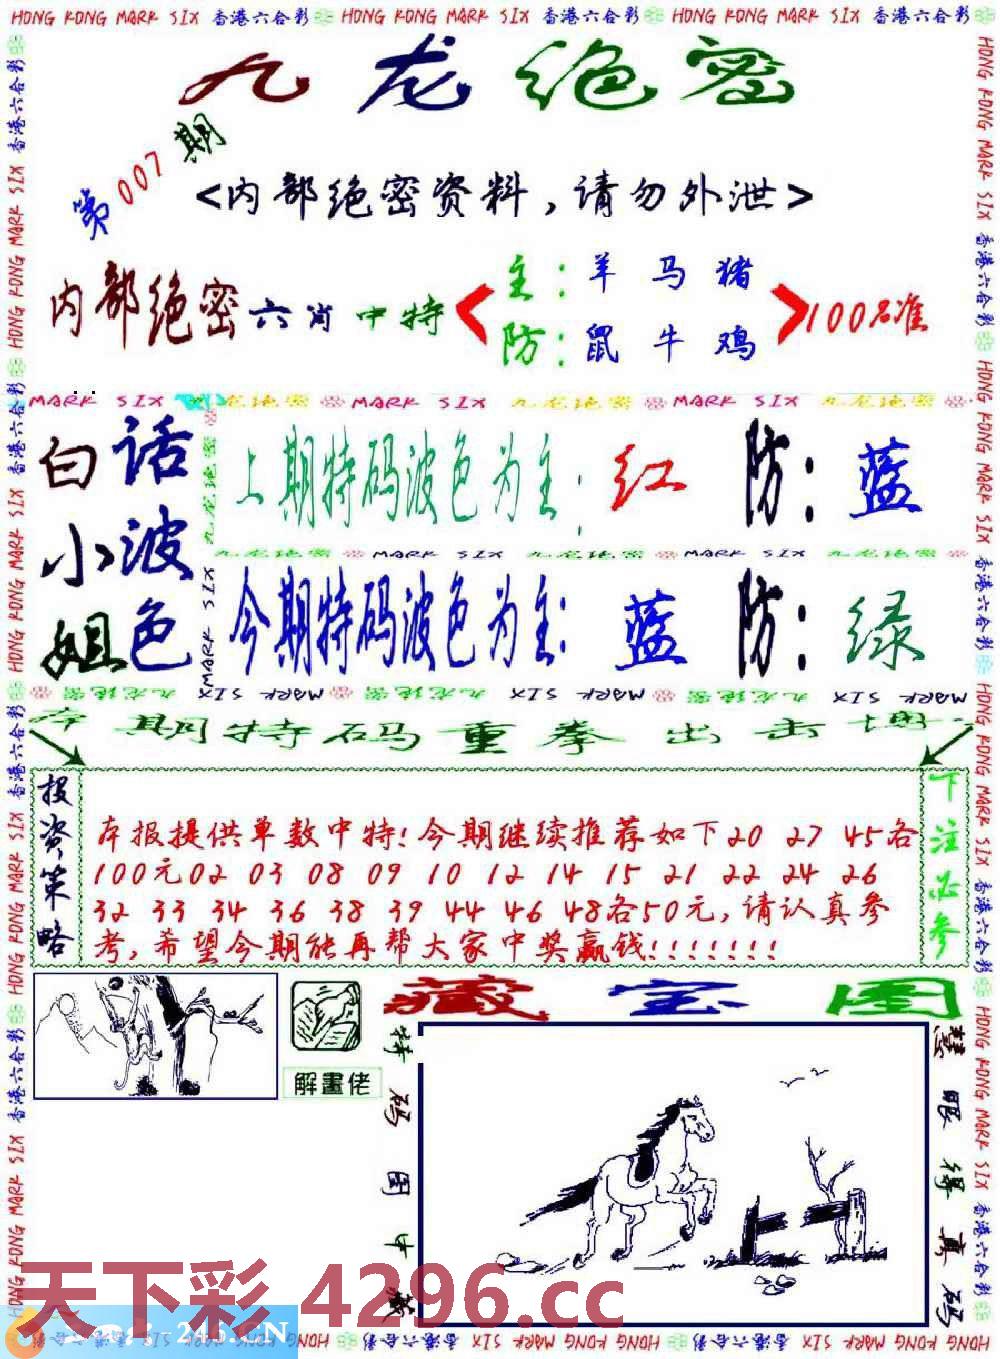 HONG KONG MARK SIX 香港六合彩 HONG KONG MARK SIX 香港六合彩 HONG KONG MARK SIX 香港六合彩
九龙绝密
第007期
<内部绝密资料,请勿外泄>
内部绝密六肖中特
主:羊 马 猪
防:鼠 牛 鸡
100%准
MARK SIX 九龙绝密 MARK SIX 九龙绝密 MARK SIX 九龙绝密
白小姐
话波色
上期特码波色为主:红 防:蓝
九龙绝密 MARK SIX 九龙绝密 MARK SIX 九龙绝密
今期特码波色为主:蓝 防:绿
本期特码重拳出击
投资策略
本报提供单数中特!今期继续推荐如下20 27 45各
100元02 03 08 09 10 12 14 15 21 22 24 26
32 33 34 36 38 39 44 46 48各50元,请认真参
考,希望今期能再帮大家中奖赢钱!!!!!!!
下注必参
藏宝图
解畫佬
特码图中藏
慧眼得真码
天下彩 4296.cc
246.CN
HONG KONG MARK SIX 香港六合彩